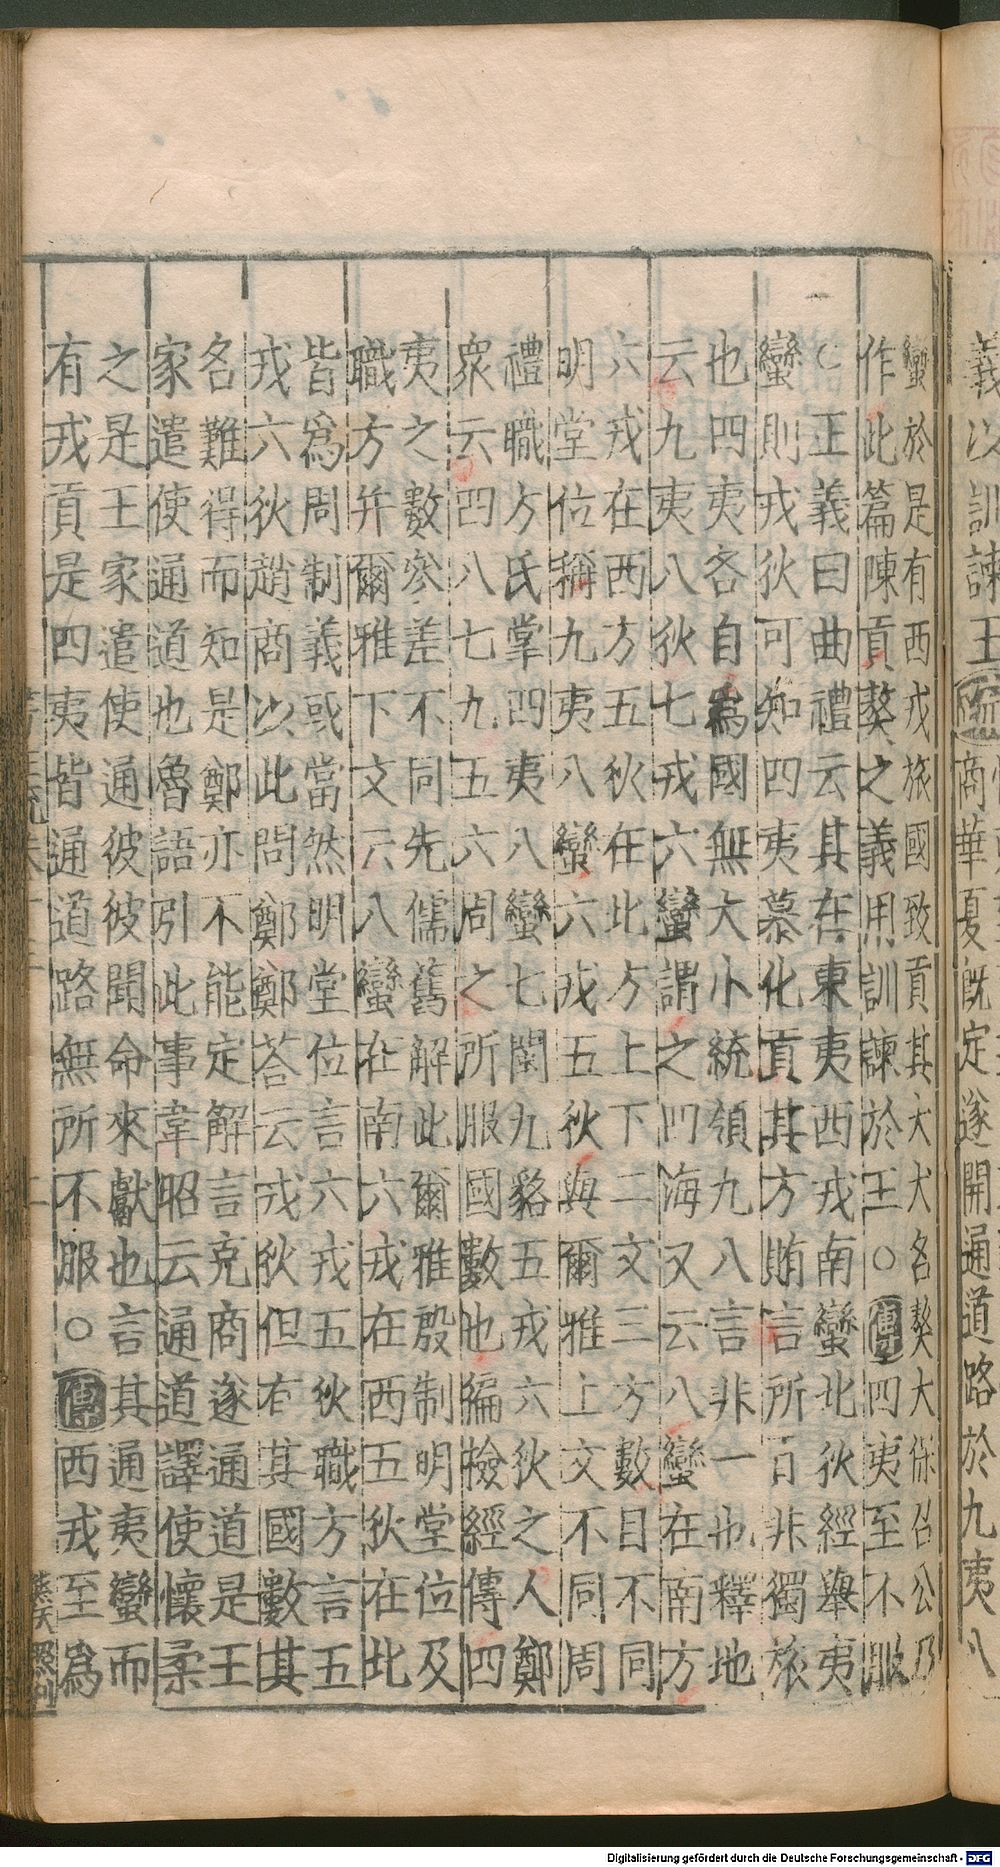 義以訓諫王疏
商華夏既定遂開通道路於九夷八
蠻於是有西戎旅國致貢其大犬名獒大保召公乃
作此篇陳貢獒之義用訓諫於王○傳四夷至不服
○正義曰曲禮云其在東夷西戎南蠻北狄經舉夷
蠻則戎狄可知四夷慕化貢其方賄言所貢非獨旅
也四夷各自爲國無大小統領九八言非一也釋地
云九夷八狄七戎六蠻謂之四海又云八蠻在南方
六戎在西方五狄在北方上下二文三方數目不同
明堂位稱九夷八蠻六戎五狄與爾雅上文不同周
禮職方氏掌四夷八蠻七閩九貉五戎六狄之人鄭
衆云四八七九五六周之所服國數也編檢經傳四
夷之數參差不同先儒舊解此爾雅殷制明堂位及
職方并爾雅下文云八蠻在南六戎在西五狄在北
皆爲周制義或當然明堂位言六戎五狄職方言五
戎六狄趙商以此問鄭鄭荅云戎狄但有其國數其
名難得而知是鄭亦不能定解言克商遂通道是王
家遣使通道也魯語引此事韋昭云通道譯使懷柔
之是王家遣使通彼彼聞命來獻也言其通夷蠻而
有戎貢是四夷皆通道路無所不服○傳西戎至爲
二
Digitalisierung gefördert durch die Deutsche Forschungsgemeinschaft - DFG